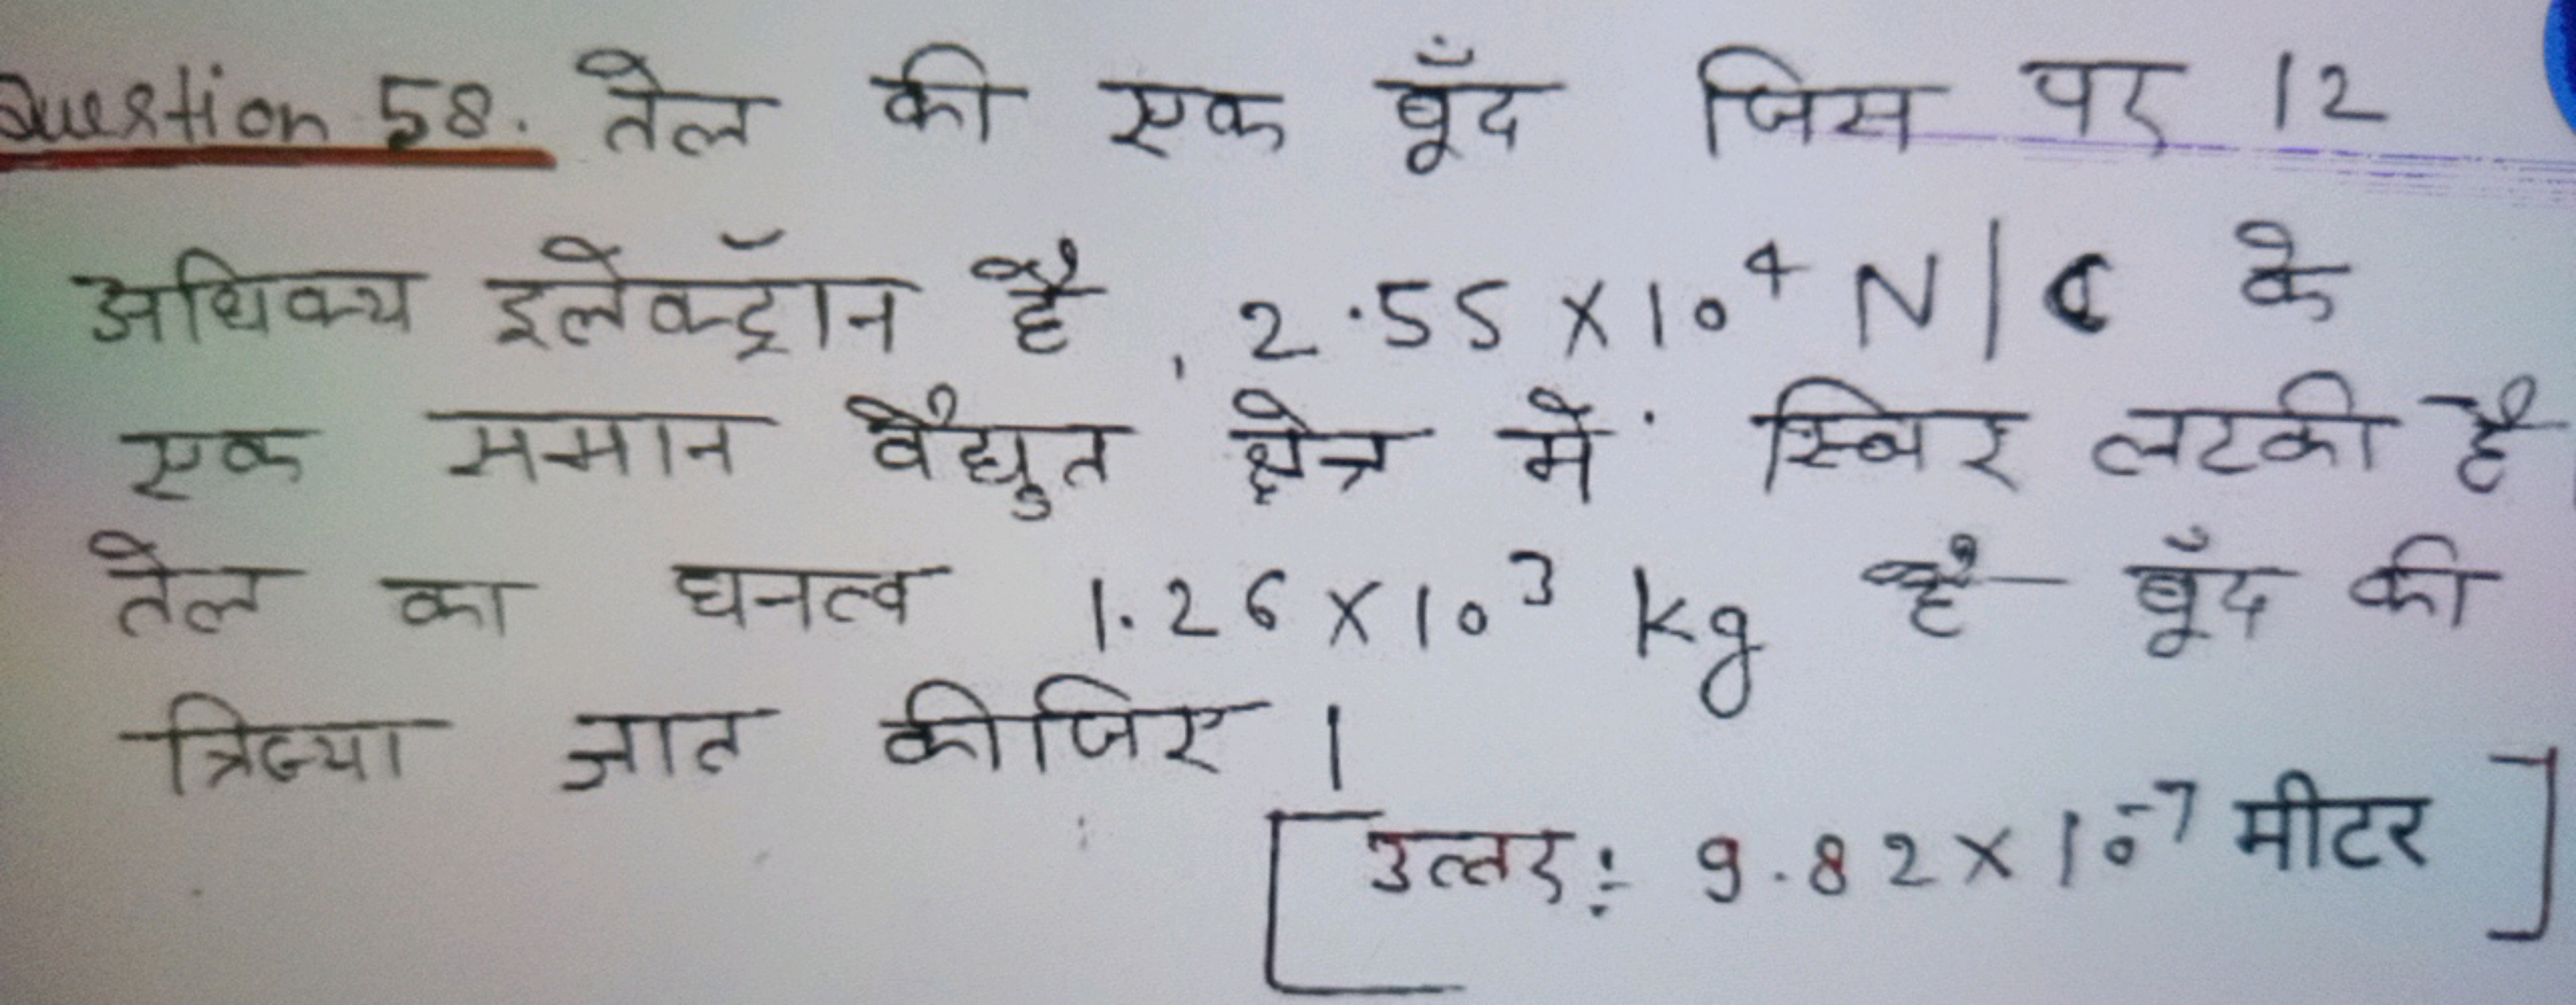 Question 58. तेल की एक बूँद जिस पर 12
अधिक्य इलेक्ट्रॉन है , 2.55 X 10⁴ N/C के
एक समान वैद्युत क्षेत्र में स्थिर लटकी है
तेल का घनत्व 1.26 X 10³ kg है बूँद की
त्रिज्या ज्ञात कीजिए ।
[उत्तर: 9.82 X 10⁻⁷ मीटर]